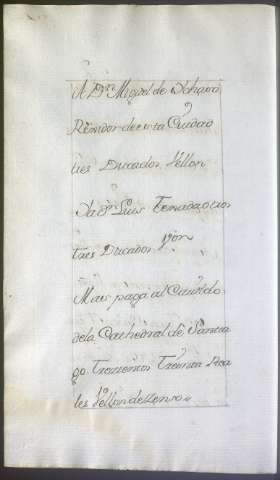 A Dn. Miguel de
Rexidor de esta Ciudad
tres Ducados Vellon
Dn. Luis
tres Ducados Von
Mas paga al Cavildo
dela Cathedral de Santia
go Trescientos Treinta Rea
les Vellon de Zenso